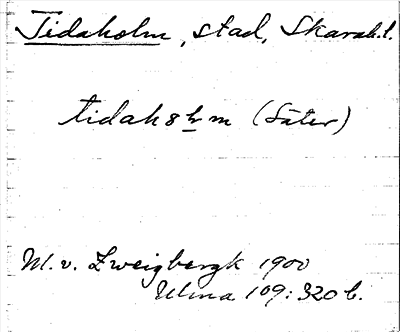 Tidaholm, stad, Skarab.l.
tidah8łm (Säter)
M. v. Zweigbergk 1900
Ulma 109:320 b.